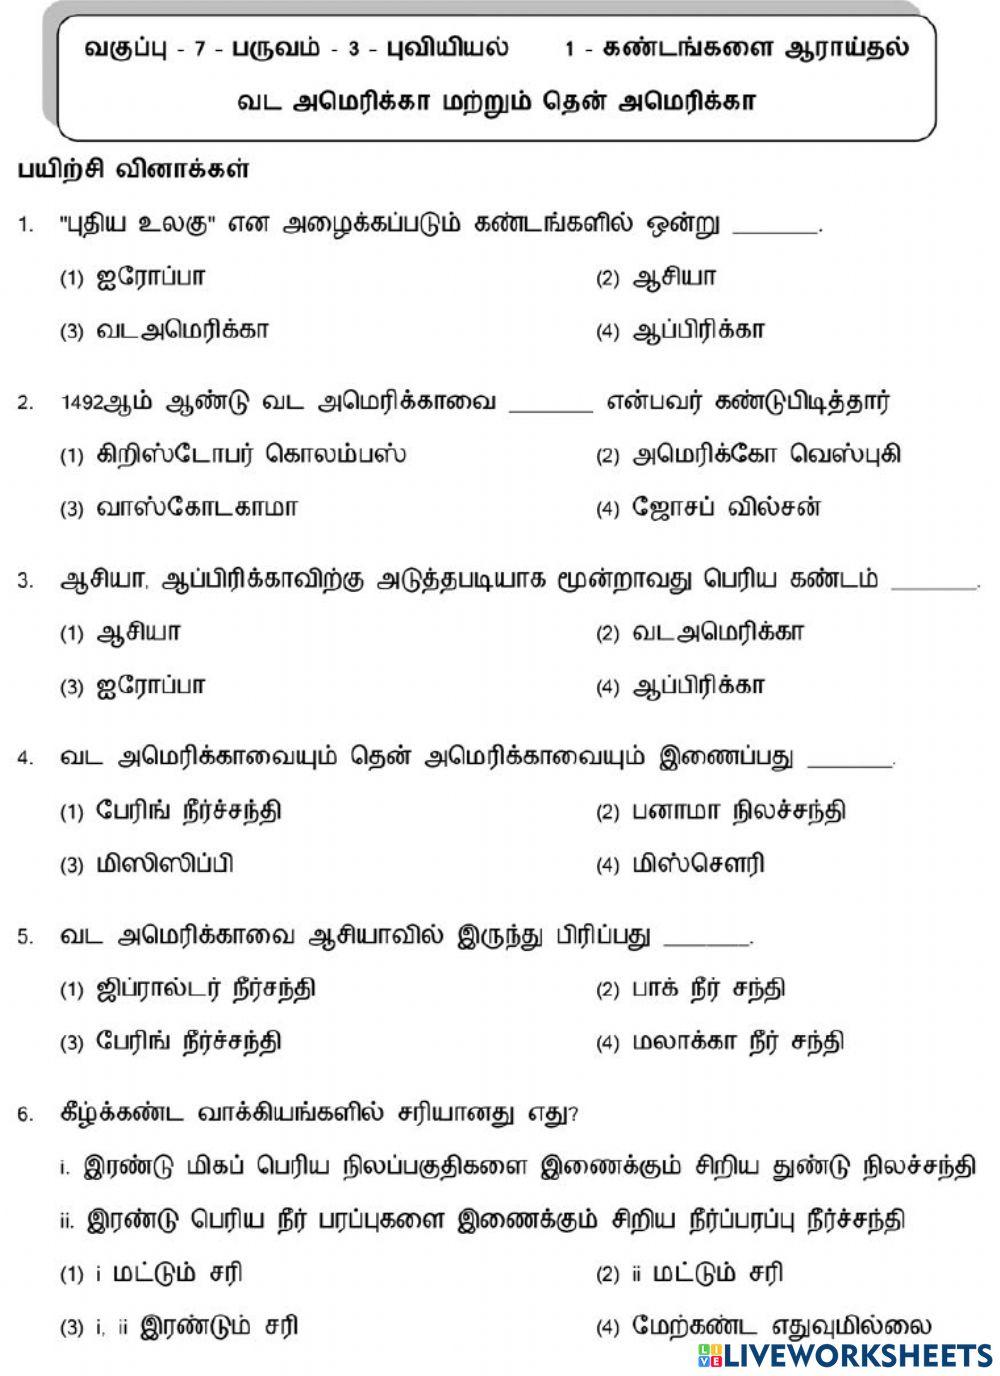 வகுப்பு - 7 - பருவம் - 3 - புவியியல் 1 - கண்டங்களை ஆராய்தல்
வட அமெரிக்கா மற்றும் தென் அமெரிக்கா
பயிற்சி வினாக்கள்
1. "புதிய உலகு" என அழைக்கப்படும் கண்டங்களில் ஒன்று ______.
(1) ஐரோப்பா (2) ஆசியா
(3) வடஅமெரிக்கா (4) ஆப்பிரிக்கா
2. 1492ஆம் ஆண்டு வட அமெரிக்காவை ______ என்பவர் கண்டுபிடித்தார்
(1) கிறிஸ்டோபர் கொலம்பஸ் (2) அமெரிக்கோ வெஸ்புகி
(3) வாஸ்கோடகாமா (4) ஜோசப் வில்சன்
3. ஆசியா, ஆப்பிரிக்காவிற்கு அடுத்தபடியாக மூன்றாவது பெரிய கண்டம் ______.
(1) ஆசியா (2) வடஅமெரிக்கா
(3) ஐரோப்பா (4) ஆப்பிரிக்கா
4. வட அமெரிக்காவையும் தென் அமெரிக்காவையும் இணைப்பது ______.
(1) பேரிங் நீர்ச்சந்தி (2) பனாமா நிலச்சந்தி
(3) மிஸிஸிப்பி (4) மிஸ்சௌரி
5. வட அமெரிக்காவை ஆசியாவில் இருந்து பிரிப்பது ______.
(1) ஜிப்ரால்டர் நீர்சந்தி (2) பாக் நீர் சந்தி
(3) பேரிங் நீர்ச்சந்தி (4) மலாக்கா நீர் சந்தி
6. கீழ்க்கண்ட வாக்கியங்களில் சரியானது எது?
i. இரண்டு மிகப் பெரிய நிலப்பகுதிகளை இணைக்கும் சிறிய துண்டு நிலச்சந்தி
ii. இரண்டு பெரிய நீர் பரப்புகளை இணைக்கும் சிறிய நீர்ப்பரப்பு நீர்ச்சந்தி
(1) i மட்டும் சரி (2) ii மட்டும் சரி
(3) i, ii இரண்டும் சரி (4) மேற்கண்ட எதுவுமில்லை
LIVE LIVEWORKSHEETS